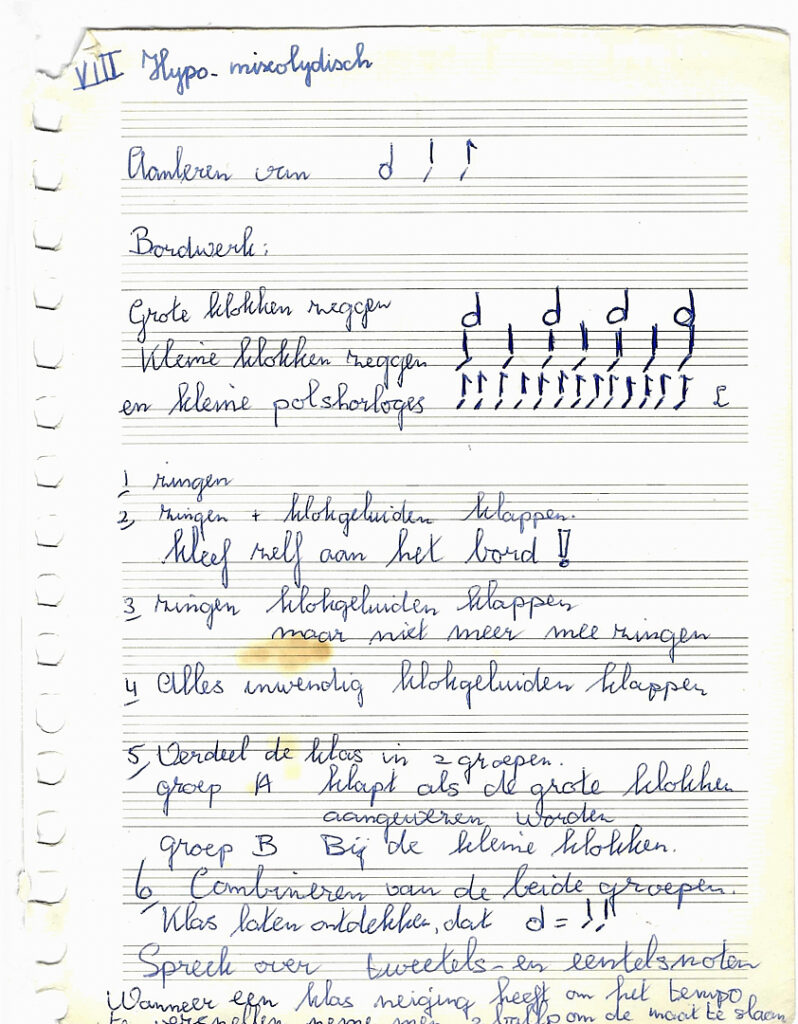 VIII Hypo-mixolydisch
Aanleren van
Bordwerk:
Grote klokken zeggen
Kleine klokken zeggen
en kleine polshorloges
1 zingen
2, zingen + klokgeluiden klappen.
kleef zelf aan het bord !!
3 zingen klokgeluiden klappen
maar niet meer mee zingen
4 Alles inwendig klokgeluiden klappen
5, Verdeel de klas in 2 groepen.
groep A klapt als de grote klokken
aangewezen worden
groep B Bij de kleine klokken.
6, Combineren van de beide groepen.
Klas laten ontdekken, dat
Spreek over tweetels- en eentelsnoten
Wanneer een klas neiging heeft om het tempo
te versnellen neme men 2 om de maat te slaan